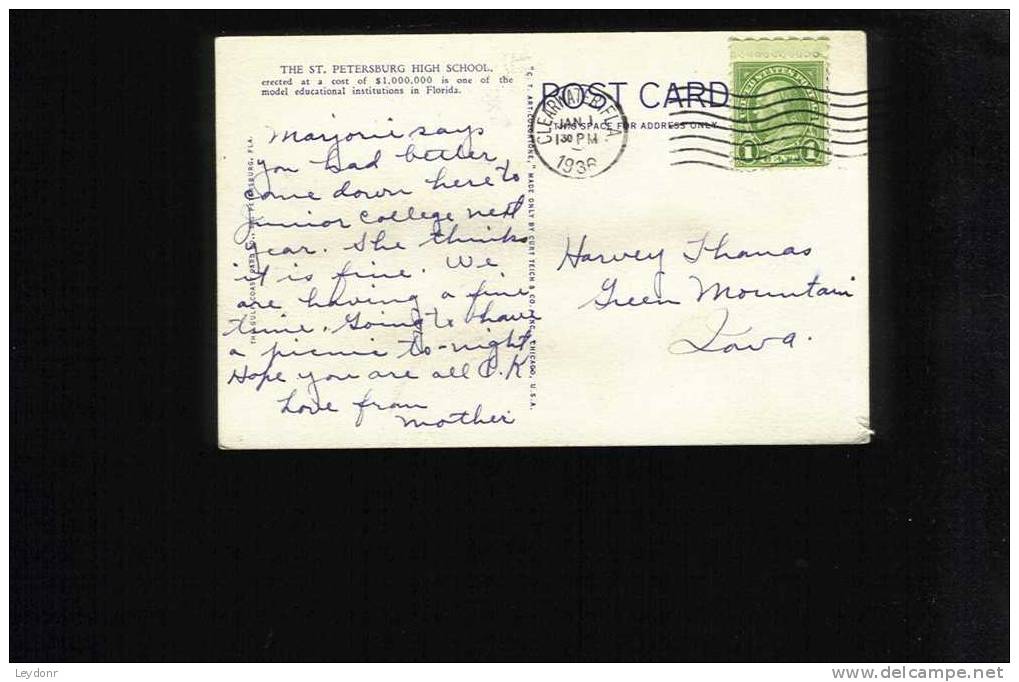 THE ST. PETERSBURG HIGH SCHOOL,
erected at a cost of $1,000,000 is one of the
model educational institutions in Florida.
Marjorie says
you had better
come down here to
junior college next
year. She thinks
it is fine. We
are having a fine
time. Going to have
a picnic to-night
Hope you are all O.K
Love from
Mother
"C. T. ART-COLORTONE," MADE ONLY BY CURT TEICH & CO., INC., CHICAGO, U.S.A.
POST CARD
THIS SPACE FOR ADDRESS ONLY
CLEARWATER, FLA.
JAN 1
130 PM
1936
1 CENT 1
Harvey Thomas
Green Mountain
Iowa.
Leydonr
www.delcampe.net